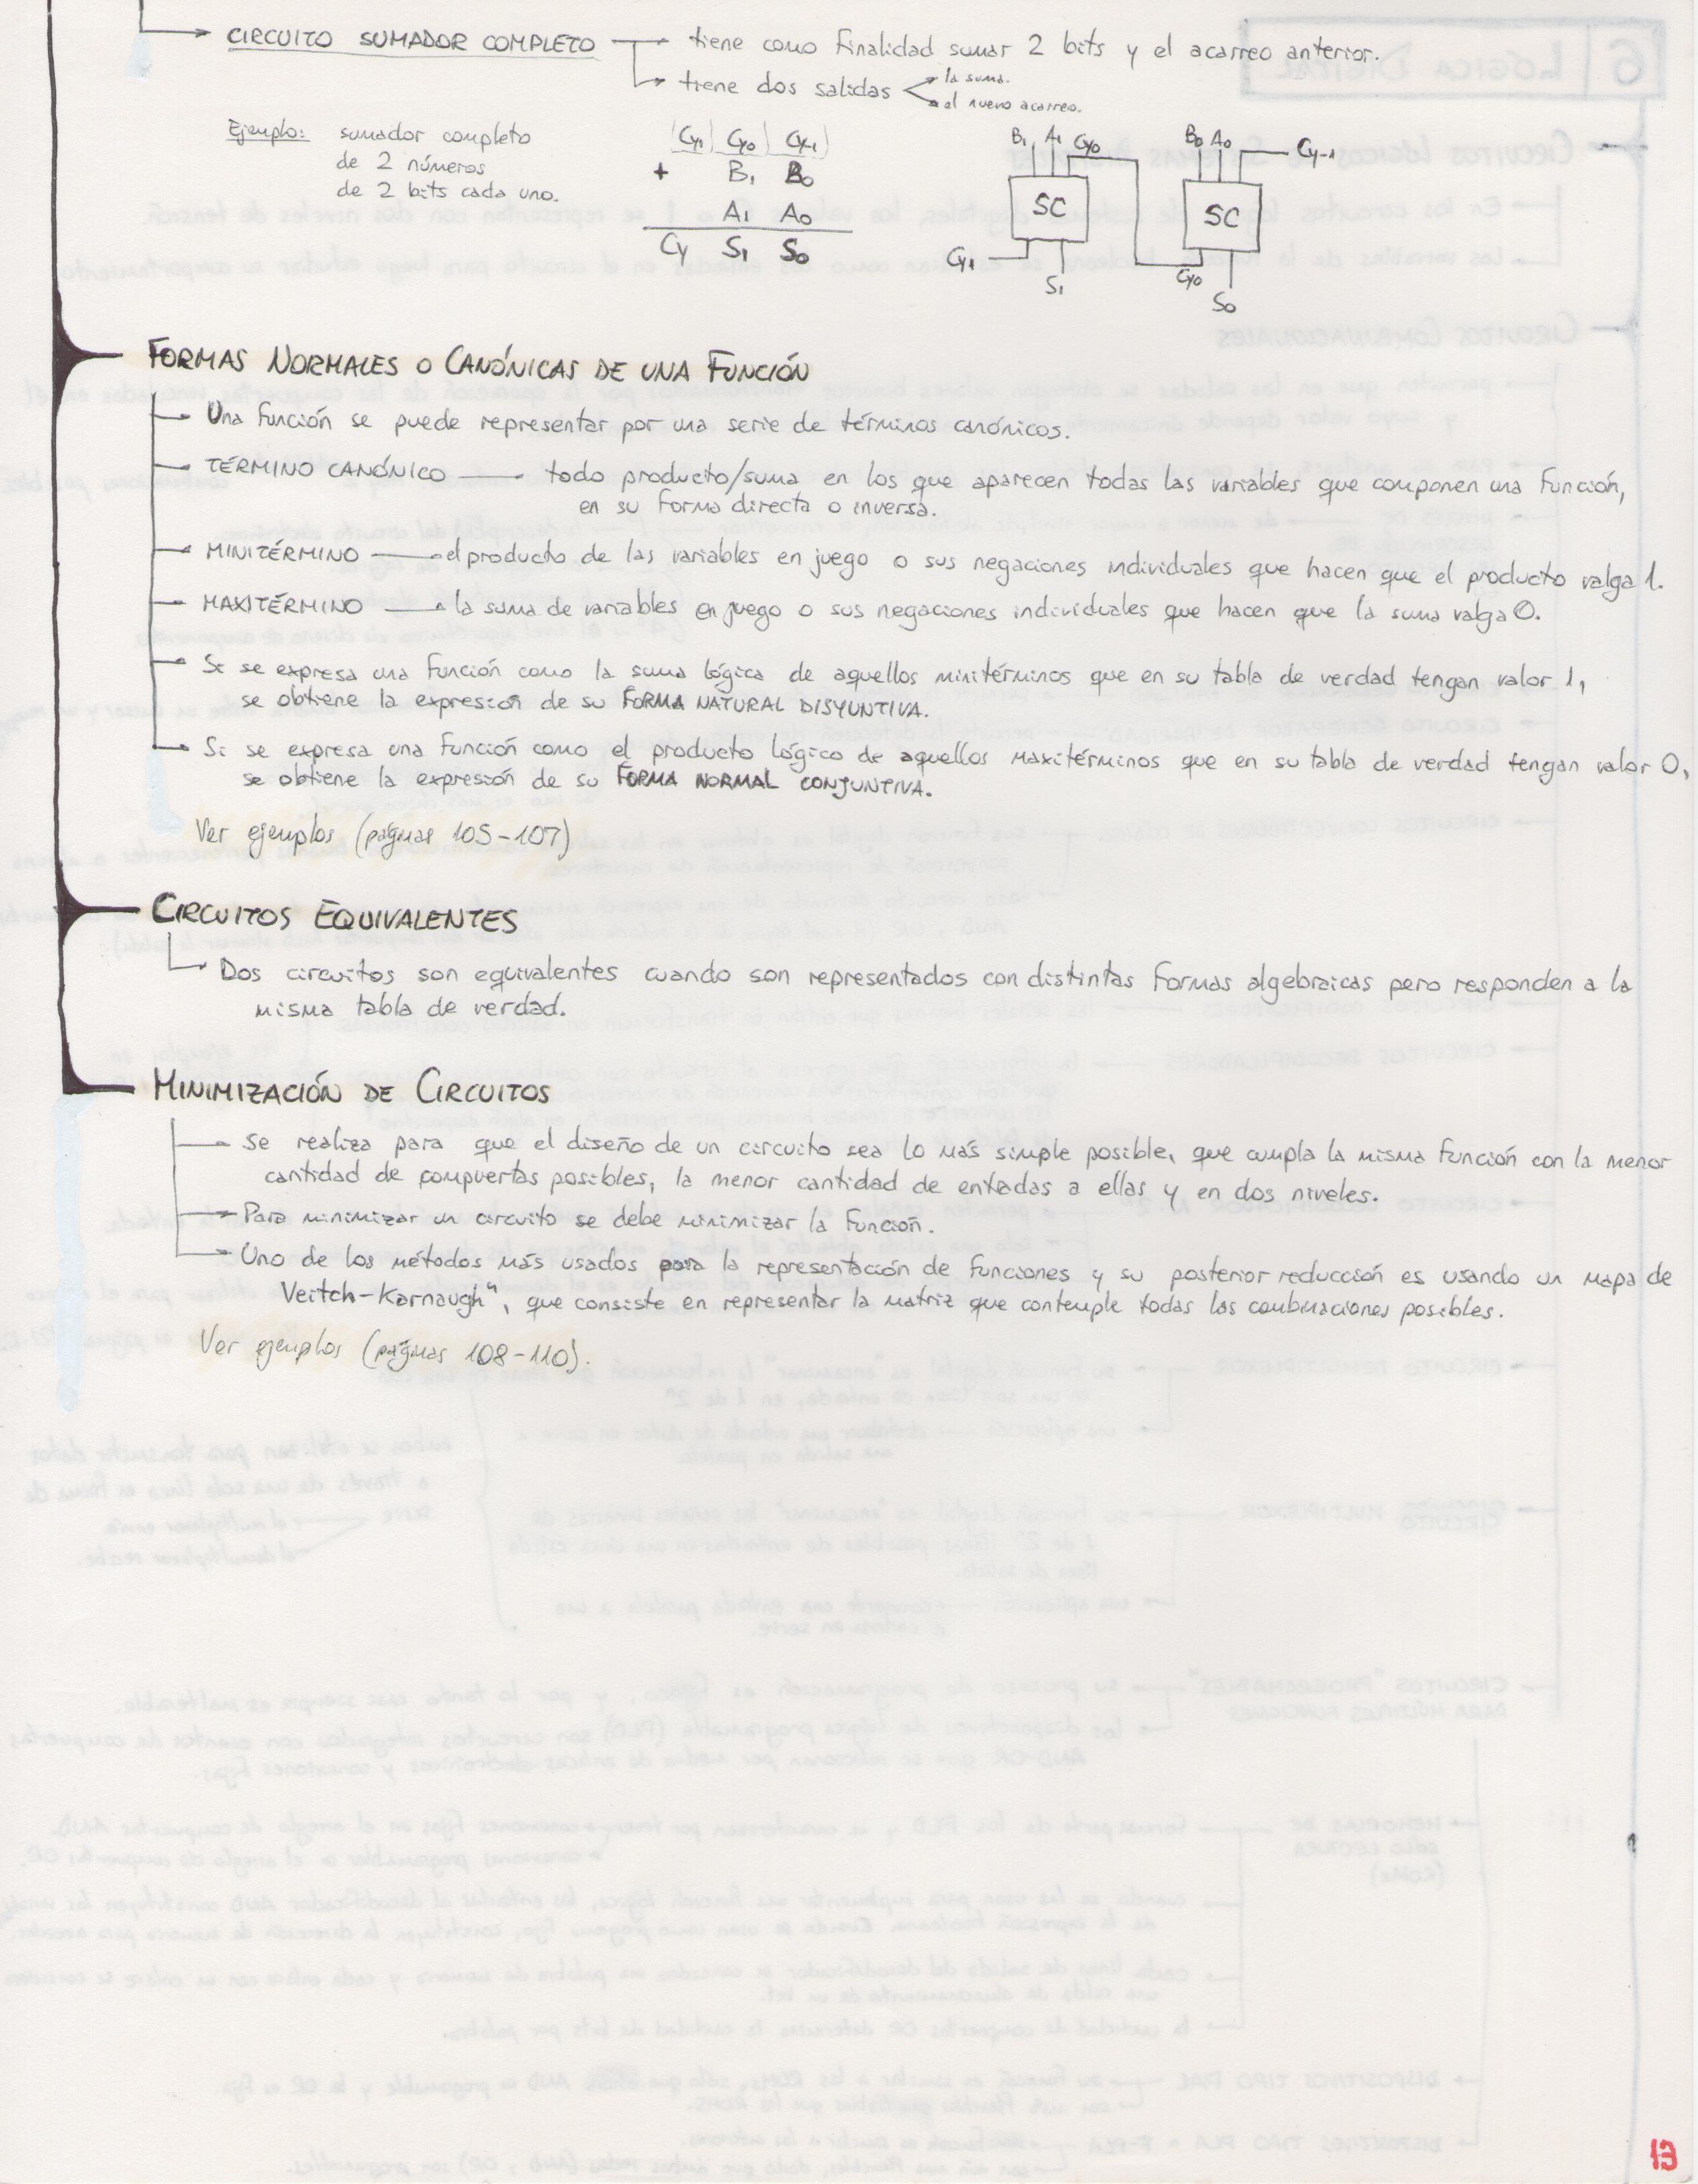 CIRCUITO SUMADOR COMPLETO → tiene como finalidad sumar 2 bits y el acarreo anterior.
→ tiene dos salidas
→ la suma.
→ el nuevo acarreo.
Ejemplo: sumador completo
de 2 números
de 2 bits cada uno.
Cy1 Cy0 Cy-1
+ B1 B0
A1 A0
Cy S1 S0
B1 A1 Cy0
SC
Cy1
S1
B0 A0 Cy-1
SC
Cy0
S0
FORMAS NORMALES O CANÓNICAS DE UNA FUNCIÓN
Una función se puede representar por una serie de términos canónicos.
TÉRMINO CANÓNICO → todo producto/suma en los que aparecen todas las variables que componen una función,
en su forma directa o inversa.
MINITÉRMINO → el producto de las variables en juego o sus negaciones individuales que hacen que el producto valga 1.
MAXITÉRMINO → la suma de variables en juego o sus negaciones individuales que hacen que la suma valga 0.
Si se expresa una función como la suma lógica de aquellos minitérminos que en su tabla de verdad tengan valor 1,
se obtiene la expresión de su FORMA NATURAL DISYUNTIVA.
Si se expresa una función como el producto lógico de aquellos maxitérminos que en su tabla de verdad tengan valor 0,
se obtiene la expresión de su FORMA NORMAL CONJUNTIVA.
Ver ejemplos (páginas 105-107)
CIRCUITOS EQUIVALENTES
Dos circuitos son equivalentes cuando son representados con distintas formas algebraicas pero responden a la
misma tabla de verdad.
MINIMIZACIÓN DE CIRCUITOS
Se realiza para que el diseño de un circuito sea lo más simple posible, que cumpla la misma función con la menor
cantidad de compuertas posibles, la menor cantidad de entradas a ellas y en dos niveles.
Para minimizar un circuito se debe minimizar la función.
Uno de los métodos más usados para la representación de funciones y su posterior reducción es usando un mapa de
Veitch-Karnaugh", que consiste en representar la matriz que contemple todas las combinaciones posibles.
Ver ejemplos (páginas 108-110).
13